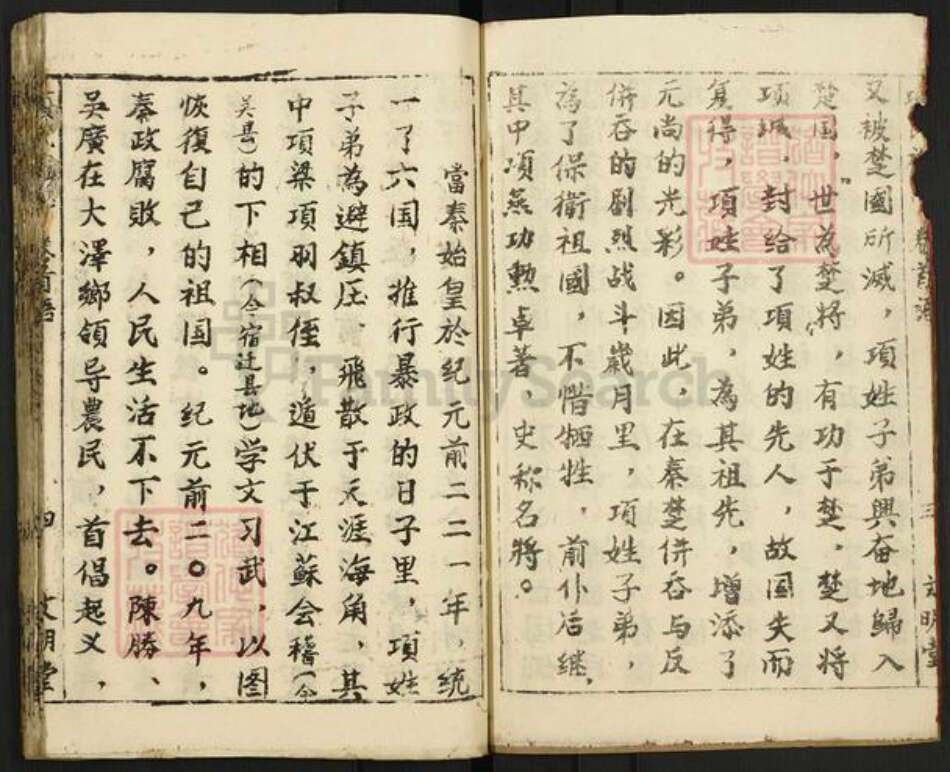 卷首語
三
文明堂
又被楚國所滅，項姓子弟興奋地歸入
楚国，世為楚将，有功于楚。楚又将
項城，封给了項姓的先人，故国失而
复得，項姓子弟，為其祖先，增添了
元尚的光彩。因此，在秦楚併吞与反
併吞的剧烈战斗歲月里，項姓子弟，
為了保衛祖國，不惜牺牲，前仆后继，
其中項燕功勲卓著，史称名将。
當秦始皇於纪元前二二一年，統
一了六国，推行暴政的日子里，項姓
子弟為避鎮压，飛散于天涯海角，其
中項梁項羽叔侄，遁伏于江蘇会稽（今
吴县）的下相（今宿迁县地）学文习武，以图
恢復自己的祖国。纪元前二〇九年，
秦政腐敗，人民生活不下去。陳勝、
吳廣在大澤鄉領导農民，首倡起义，
卷首語
四
文明堂
FamilySearch